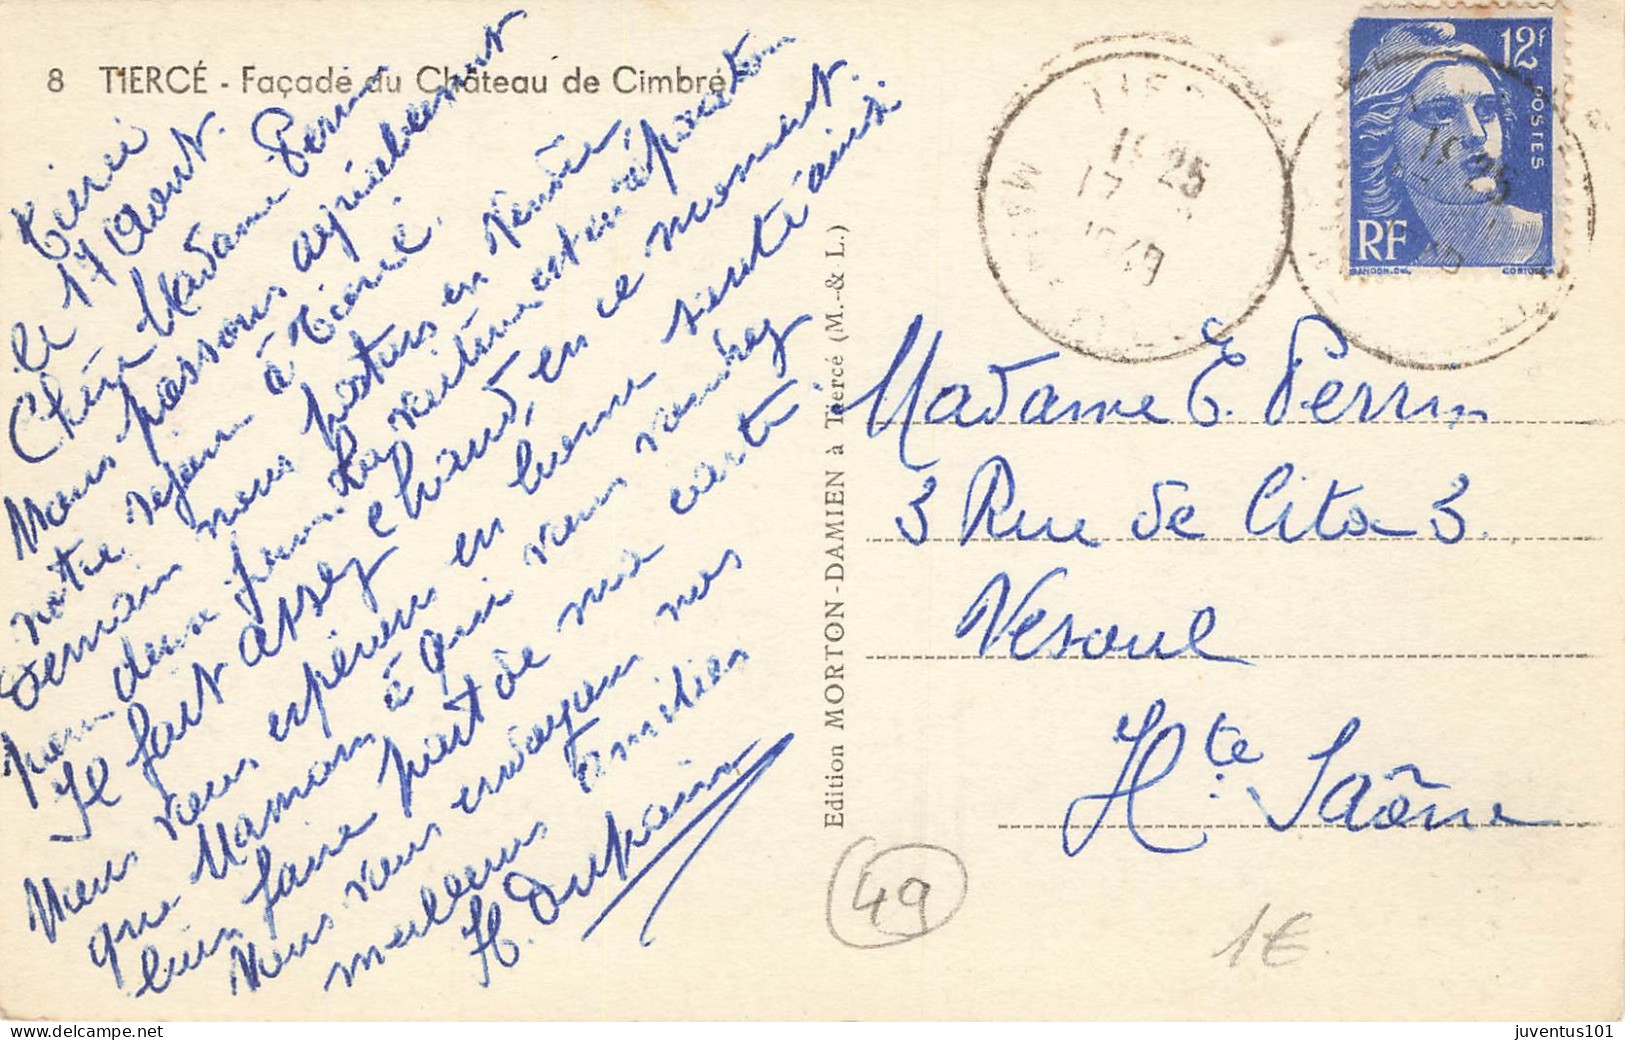 8 TIERCÉ - Façade du Château de Cimbré
Tiercé
le 17 Aout.
Chère Madame Perrin
Nous passons agréablement
notre séjour à Tiercé.
Demain nous partons en Vendée,
pour deux jours. La voiture est en réparation
Il fait assez chaud, en ce moment.
Nous vous espérons en bonne santé ainsi
que Maman à qui vous voudrez
bien faire part de ma carte.
Nous vous envoyons nos
meilleures amitiés
H. Dupain
Edition MORTON-DAMIEN à Tiercé (M.-& L.)
12F
POSTES
RF
GANDON.DEL.
CORTOT.SC
15 25
17
1949
MAINE
Madame E. Perrin
3 Rue de Cita 3.
Vesoul
Hte Saône
49
1€
juventus101